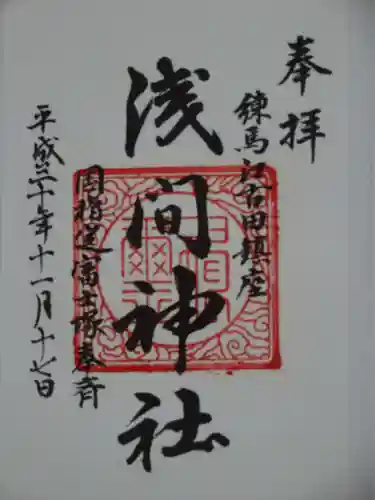 奉拝
練馬江古田鎮座
浅間神社
国指定富士塚奉斉
平成三十年十一月十七日